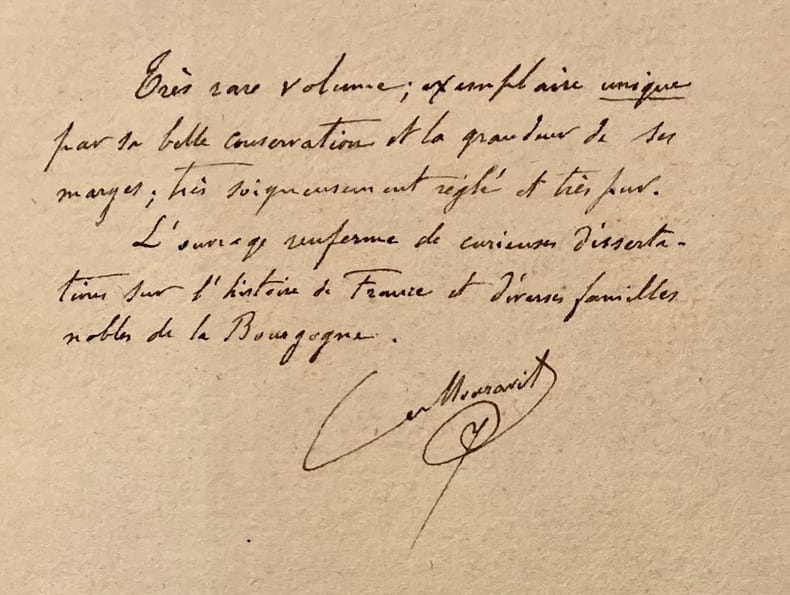 Très rare volume ; exemplaire unique
par sa belle conservation et la grandeur de ses
marges ; très soigneusement réglé et très pur.
L'ouvrage renferme de curieuses disserta-
tions sur l'histoire de France et diverses familles
nobles de la Bourgogne.
Mouravit